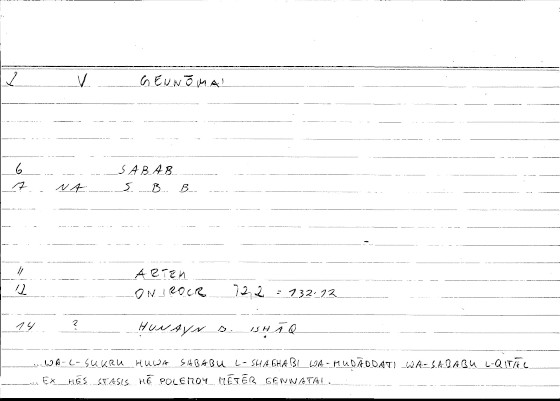 2 V GEUNŌMAI
6 SABAB
7 NA S B B
11 ARTEM
12 ONIROCR 72,2 = 132.12
14 ? HUNAYN B. ISHĀQ
...WA-L-SUKRU HUWA SABABU L-SHAGHABI WA-MUḌĀDDATI WA-SABABU L-QITĀL
...EX HĒS STASIS HĒ POLEMOY MĒTĒR GENNATAI.